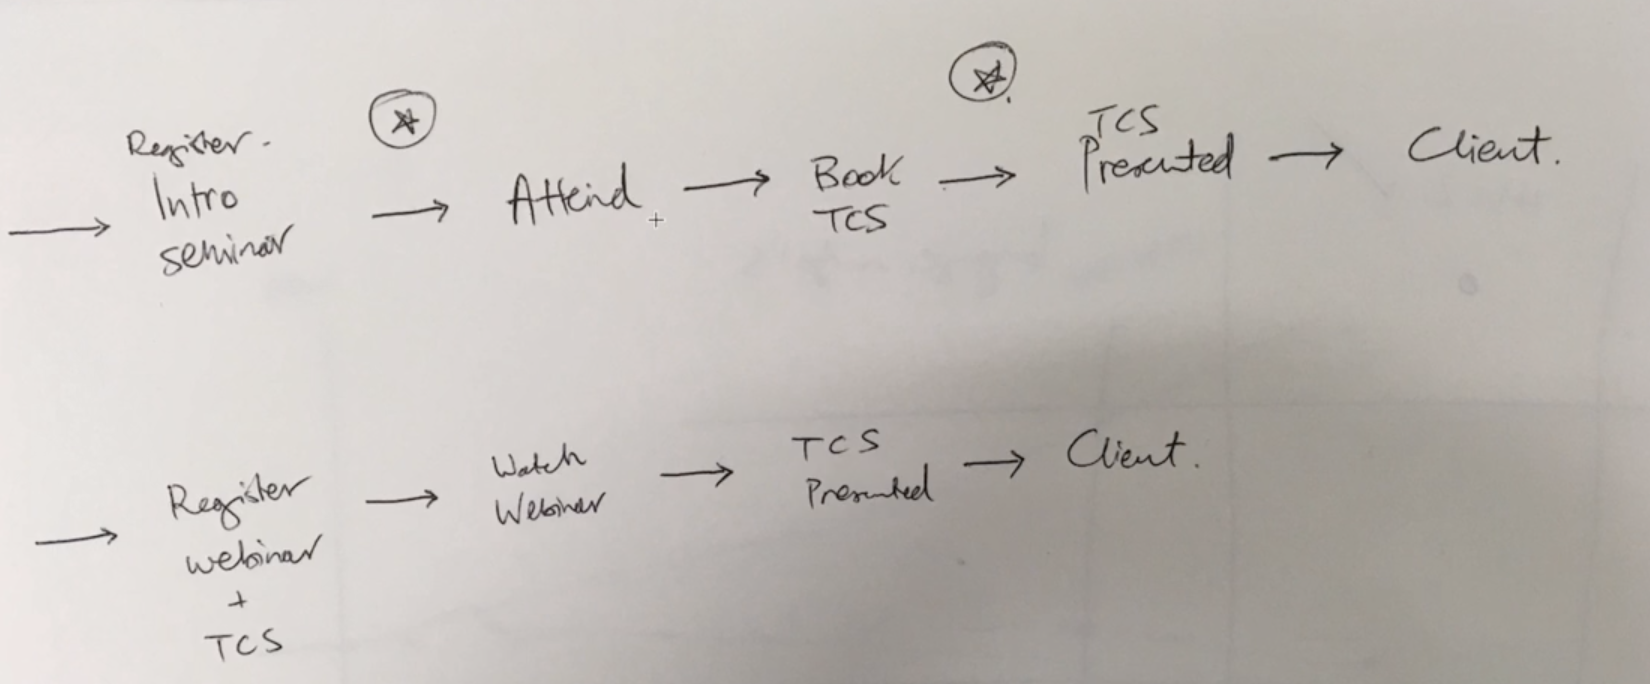 Register.
Intro
seminar
Attend
Book
TCS
TCS
Presented
Client.
Register
webinar
+
TCS
Watch
Webinar
TCS
Presented
Client.